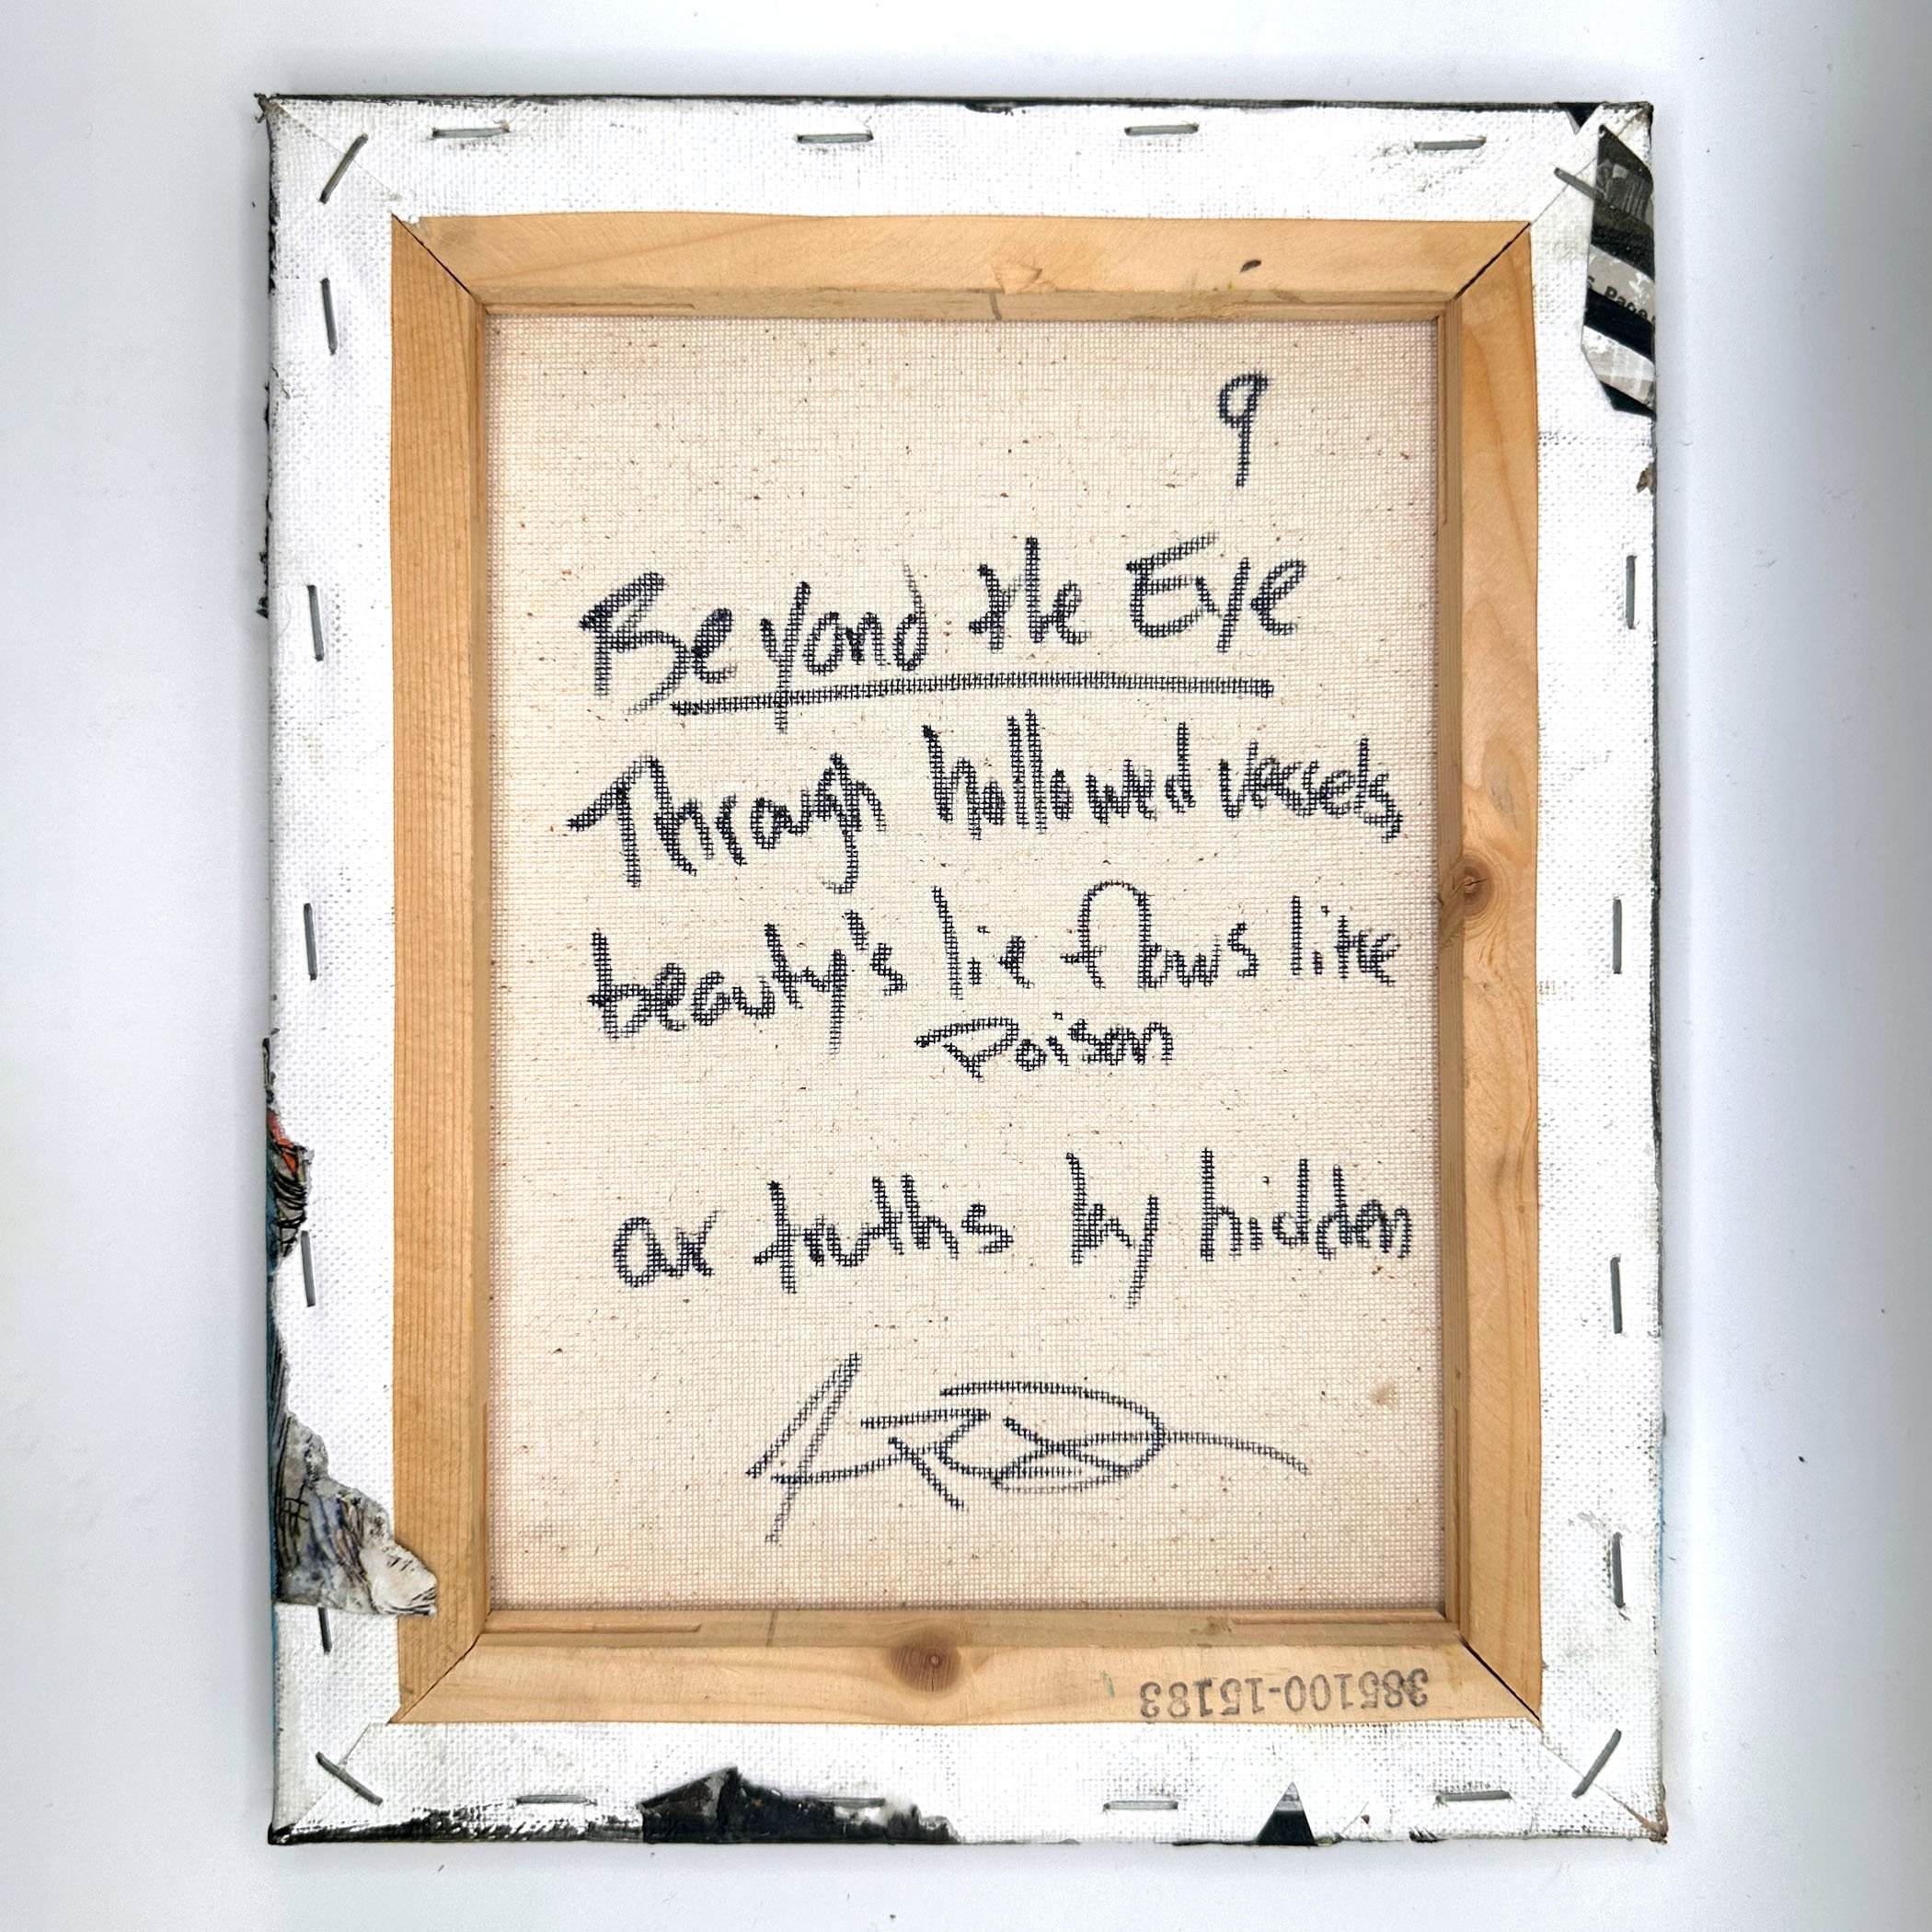 9
Beyond the Eye
Through hollowed vessels
beauty's lie flows like
Poison
our truths by hidden
385100-15183